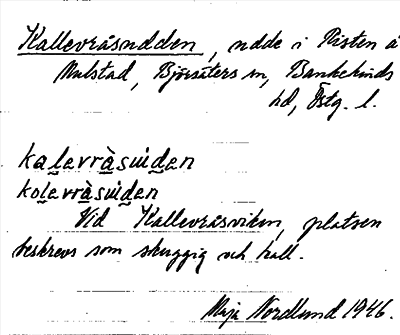 Kallevråsudden, udde i Risten å
Mulstad, Björsäters sn, Bankekinds
hd, Östg. l.
kalevråsuden
kolevråsuden
Vid Kallevråsviken, platsen
beskrevs som skuggig och kall.
Maja Nordlund 1946.